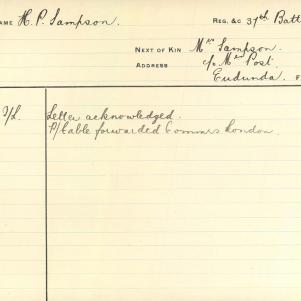 NAME H. P. Sampson. REG. &c 37th Batt
NEXT OF KIN Mrs Sampson.
ADDRESS c/o Mrs Post.
Eudunda. F
I/L. Letter acknowledged.
P/Cable forwarded Commrs London.